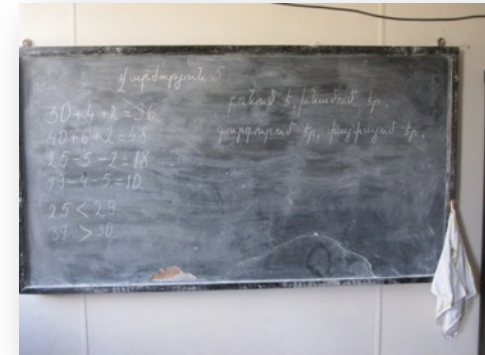 Վարժություն 5
30+4+2=36
40+6+2=48
25-5-2=18
19-4-5=10
25<29
39>30
բռնում է, խնամում էր,
զարգարում էր, փայլում էր,